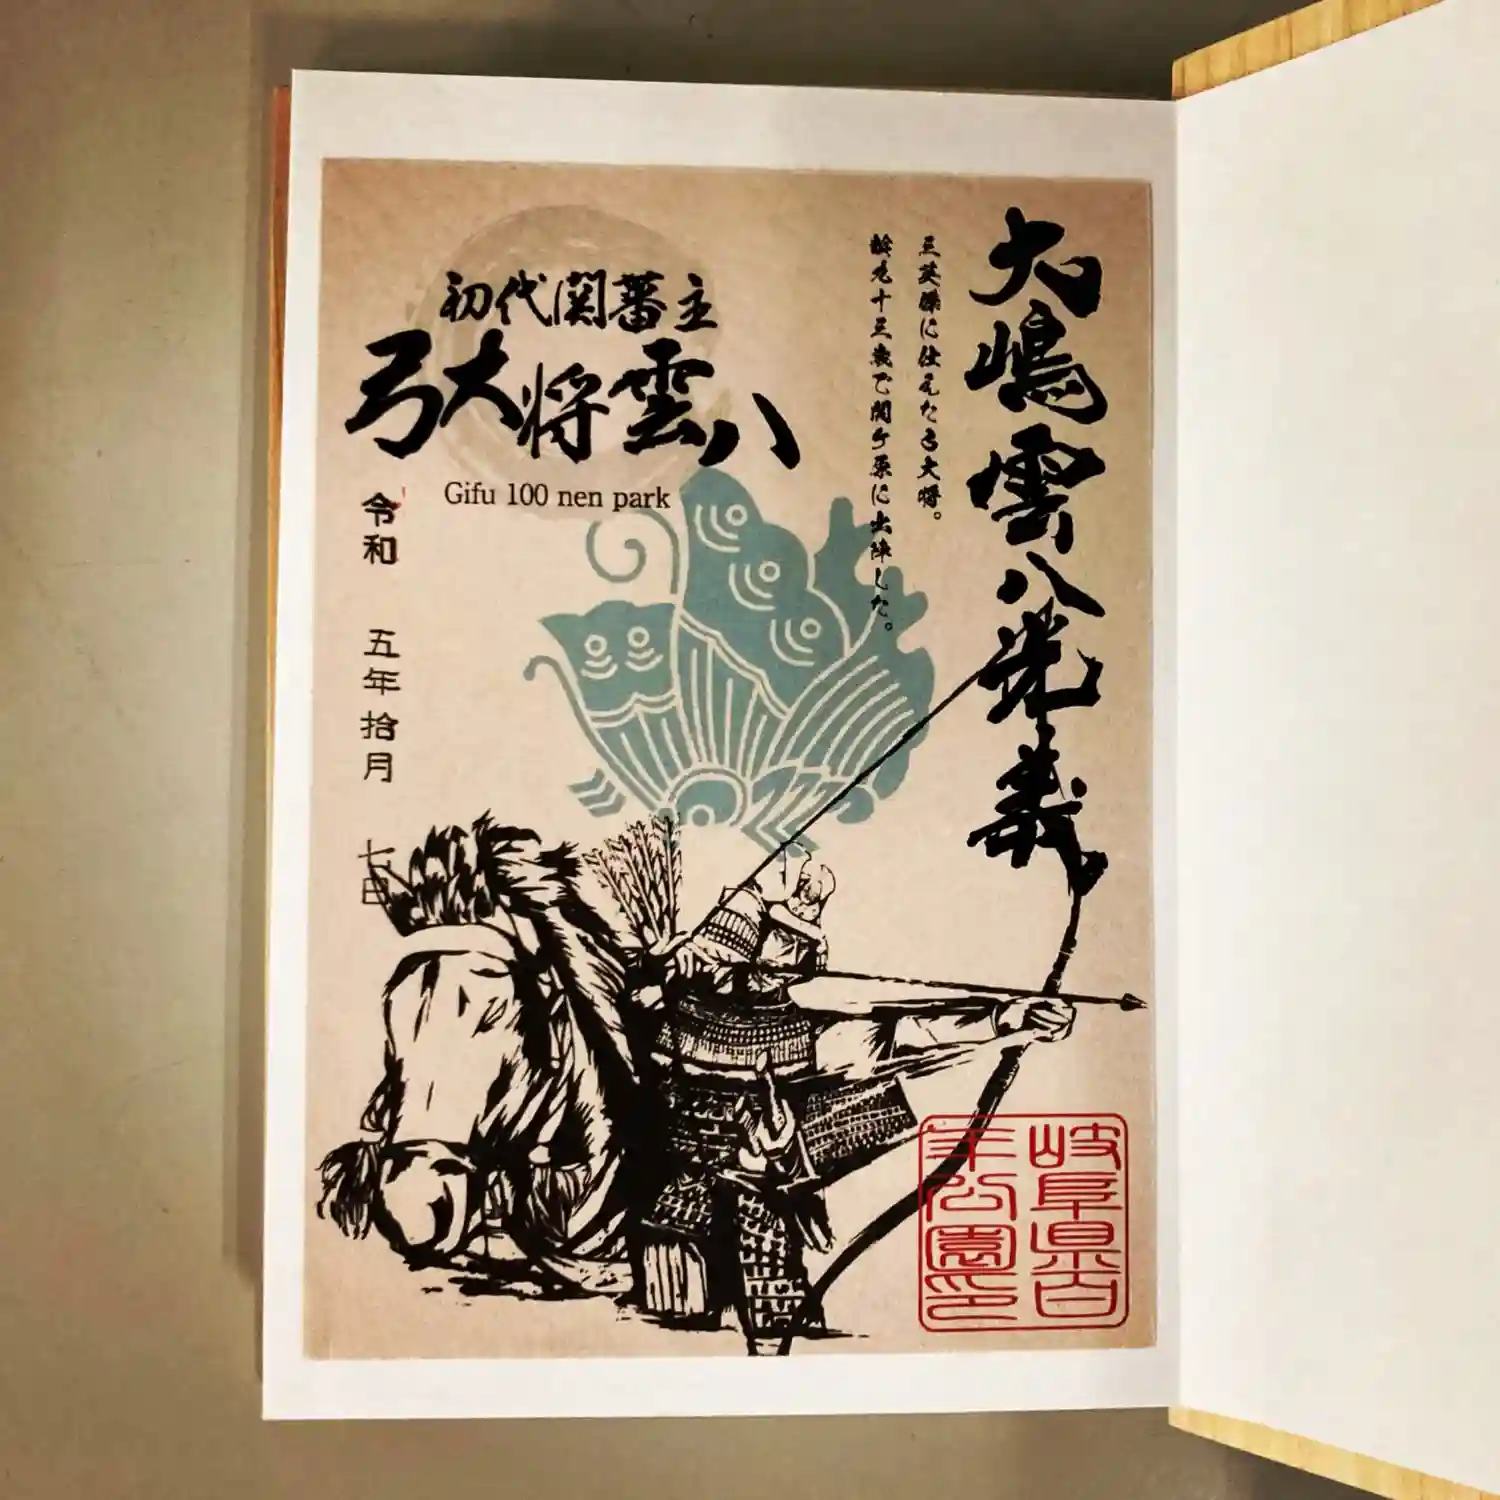 大嶋雲八光義
三英傑に仕えた弓大将。
齢九十三歳で関ケ原に出陣した。
初代関蕃主
弓大将雲八
Gifu 100 nen park
令和 五年拾月 七日
岐阜県百
年公園印